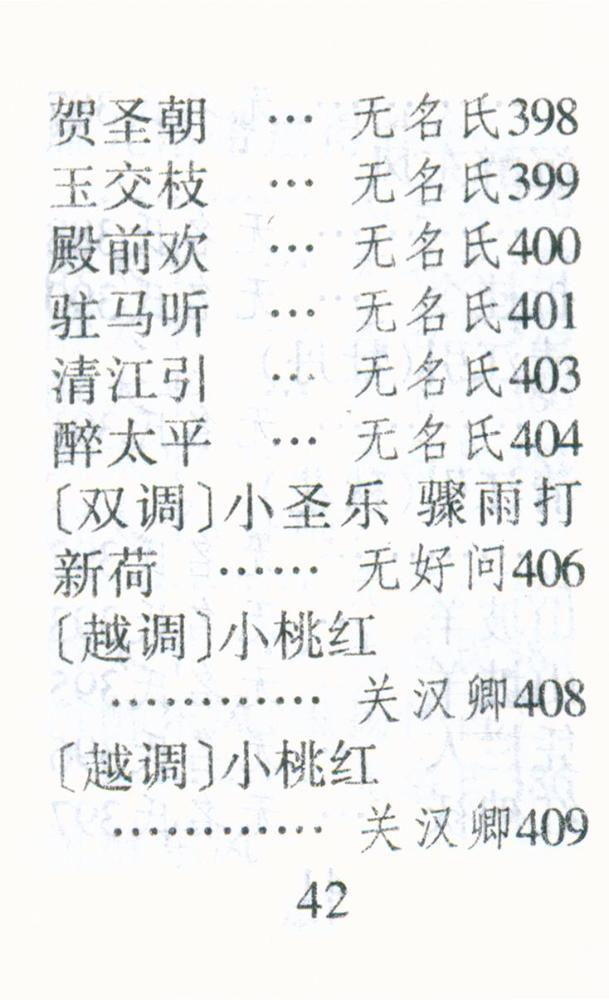 贺圣朝 … 无名氏398
玉交枝 … 无名氏399
殿前欢 … 无名氏400
驻马听 … 无名氏401
清江引 … 无名氏403
醉太平 … 无名氏404
〔双调〕小圣乐 骤雨打
新荷 …… 无好问406
〔越调〕小桃红
………… 关汉卿408
〔越调〕小桃红
………… 关汉卿409
42